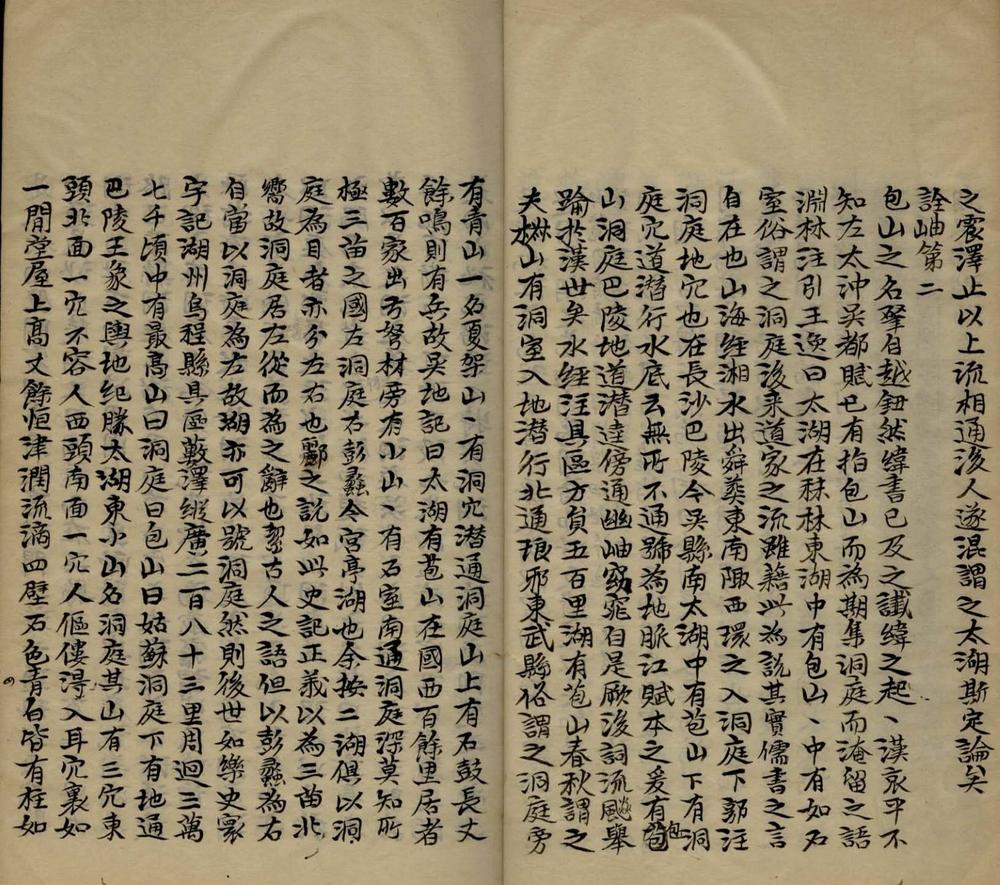 之震澤止以上流相通後人遂混謂之太湖斯定論矣
詮岫第二
包山之名肇自越鈕然緯書已及之讖緯之起丶漢哀平不
知左太沖吳都賦已有指包山而為期集洞庭而淹留之語
淵林注引王逸曰太湖在秣林東湖中有包山丶中有如石
室俗謂之洞庭後來道家之流雖藉此為說其實儒書之言
自在也山海經湘水出舜葬東南陬西環之入洞庭下郭注
洞庭地穴也在長沙巴陵今吳縣南太湖中有苞山下有洞
庭穴道潜行水底云無所不通號為地脈江賦本之爰有包
山洞庭巴陵地道潜逵傍通幽岫窈窕自是厥後詞流颷舉
踰於漢世矣水經注具區方員五百里湖有苞山春秋謂之
夫椒山有洞室入地潜行北通琅邪東武縣俗謂之洞庭旁
有青山一名夏架山丶有洞穴潜通洞庭山上有石鼓長丈
餘鳴則有兵故吳地記曰太湖有苞山在國西百餘里居者
數百家出弓弩材旁有小山丶有石室南通洞庭深莫知所
極三苗之國左洞庭右彭蠡今宮亭湖也余按二湖俱以洞
庭為目者亦分左右也酈之說如此史記正義以為三苗北
嚮故洞庭居左從而為之辭也絜古人之語但以彭蠡為右
自當以洞庭為左故湖亦可以號洞庭然則後世如樂史寰
宇記湖州烏程縣具區藪澤縱廣二百八十三里周迴三萬
七千頃中有最高山曰洞庭曰包山曰姑蘇洞庭下有地通
巴陵王象之輿地紀勝太湖東小山名洞庭其山有三穴東
頭北面一穴不容人西頭南面一穴人傴僂淂入耳穴裏如
一間堂屋上高丈餘恒津潤流滴四壁石色青白皆有柱如